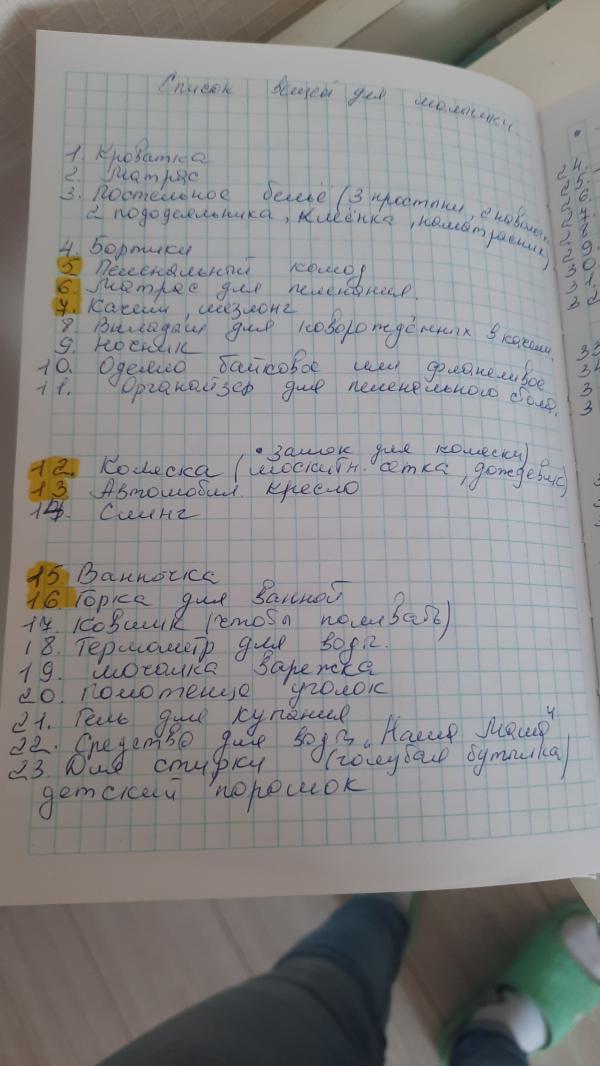 Список вещей для малышки.
1. Кроватка
2. Матрас
3. Постельное бельё (3 простыни, 2 наволоч.
2 пододеяльника, клеёнка, наматрасник)
4. Бортики
5 Пеленальный комод
6. Матрас для пеленания.
7. Качели, шезлонг
8. Вкладыш для новорождённых в качели.
9. Ночник
10. Одеяло байковое или фланелевое
11. Органайзер для пеленального стола.
• Замок для коляски)
12. Коляска (москитн. сетка, дождевик)
13. Автомобил. кресло
14. Слинг
15. Ванночка
16. Горка для ванной
17. Ковшик (чтобы поливать)
18. Термометр для воды.
19. мочалка варежка
20. Полотенце уголок
21. Гель для купания
22. Средство для воды "Наша Маша"
23. Для стирки (голубая бутылка)
детский порошок
24.
25.
26.
27
28
29
30
31.
32
33
34
3
3